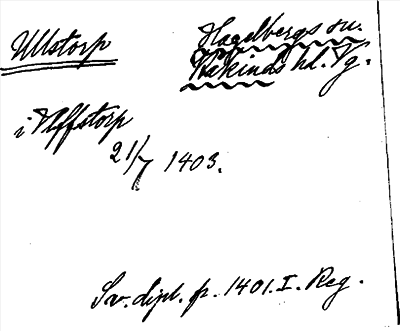 Ullstorp
Hagelbergs sn.
Kåkinds hd. Vg.
i Vlfstorp
21/7 1403.
Sv. dipl. fr. 1401. I. Reg.